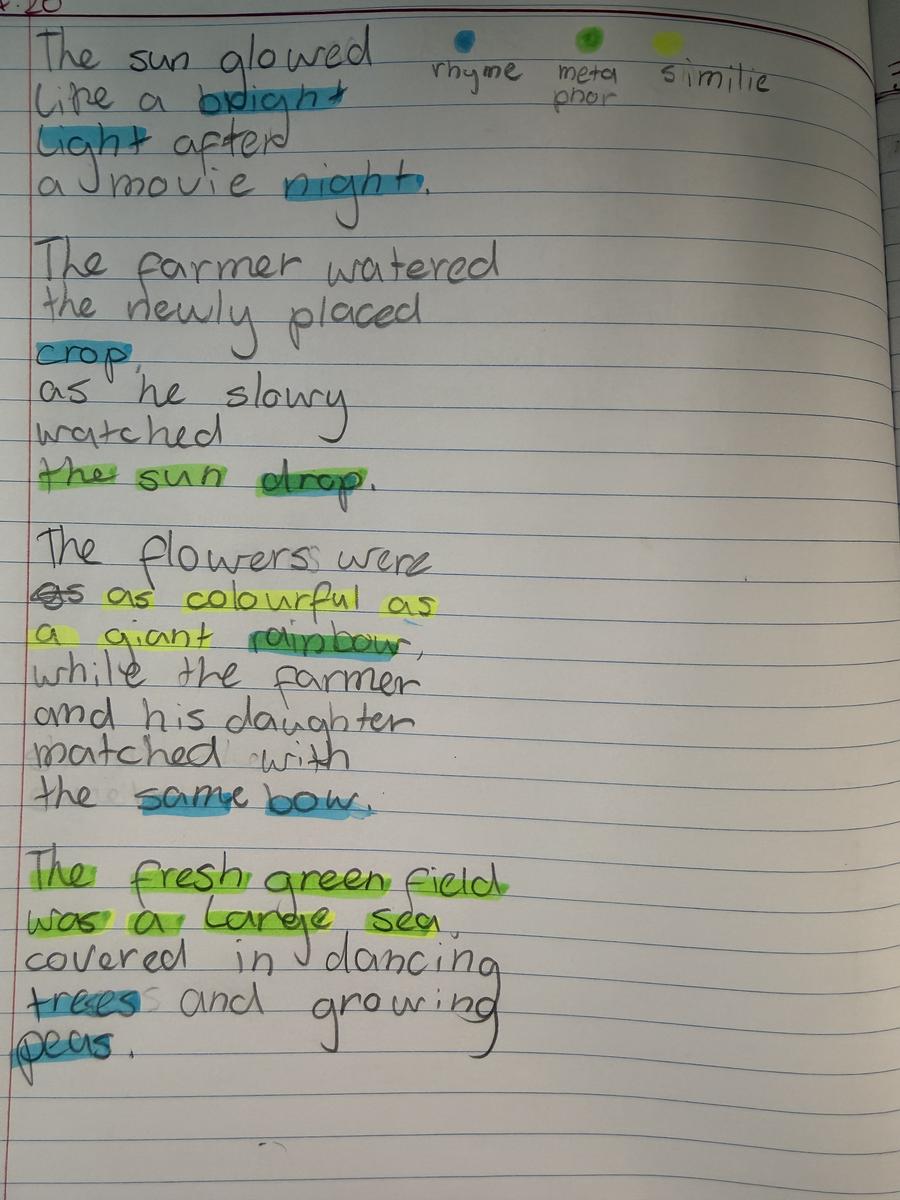 The sun glowed
like a bright
light after
a movie night.
rhyme
meta
phor
similie
The farmer watered
the newly placed
crop,
as he slowy
watched
the sun drop.
The flowers were
as as colourful as
a giant rainbow,
while the farmer
and his daughter
matched with
the same bow.
The fresh green field
was a large sea,
covered in dancing
trees and growing
peas.